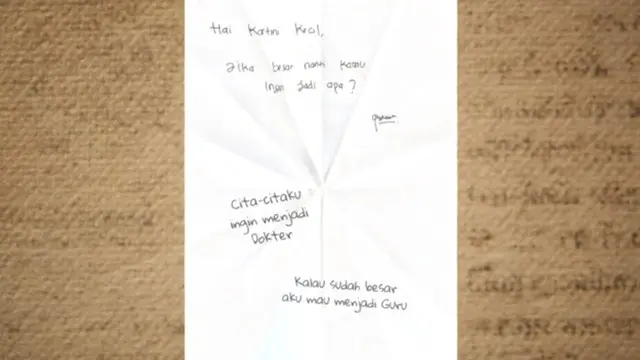 Hai Kartni Kecil,
Jika besar nanti kamu
Ingin Jadi apa?
Cita-citaku
ingin menjadi
Dokter
Kalau sudah besar
aku mau menjadi Guru